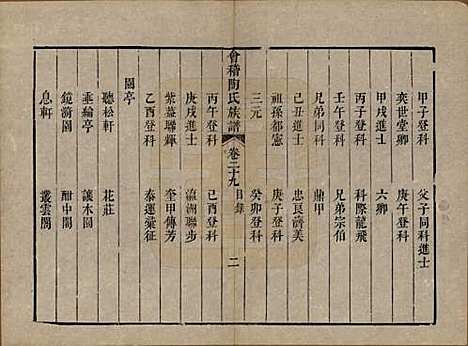 甲子登科 父子同科進士
奕世堂卿 庚午登科
甲戌進士 六卿
丙子登科 科際龍飛
壬午登科 兄弟宗伯
兄弟同科 鼎甲
己丑進士 忠良濟美
祖孫都憲 庚子登科
三元 癸卯登科
會稽陶氏族譜 卷二十九 目錄 二
丙午登科 己酉登科
庚戌進士 瀛洲聯步
紫薇聯輝 奎甲傳芳
乙酉登科 泰運彙征
園亭
聽松軒 花莊
垂綸亭 讓木園
鏡漪園 酣中閣
息軒 叢雲閣